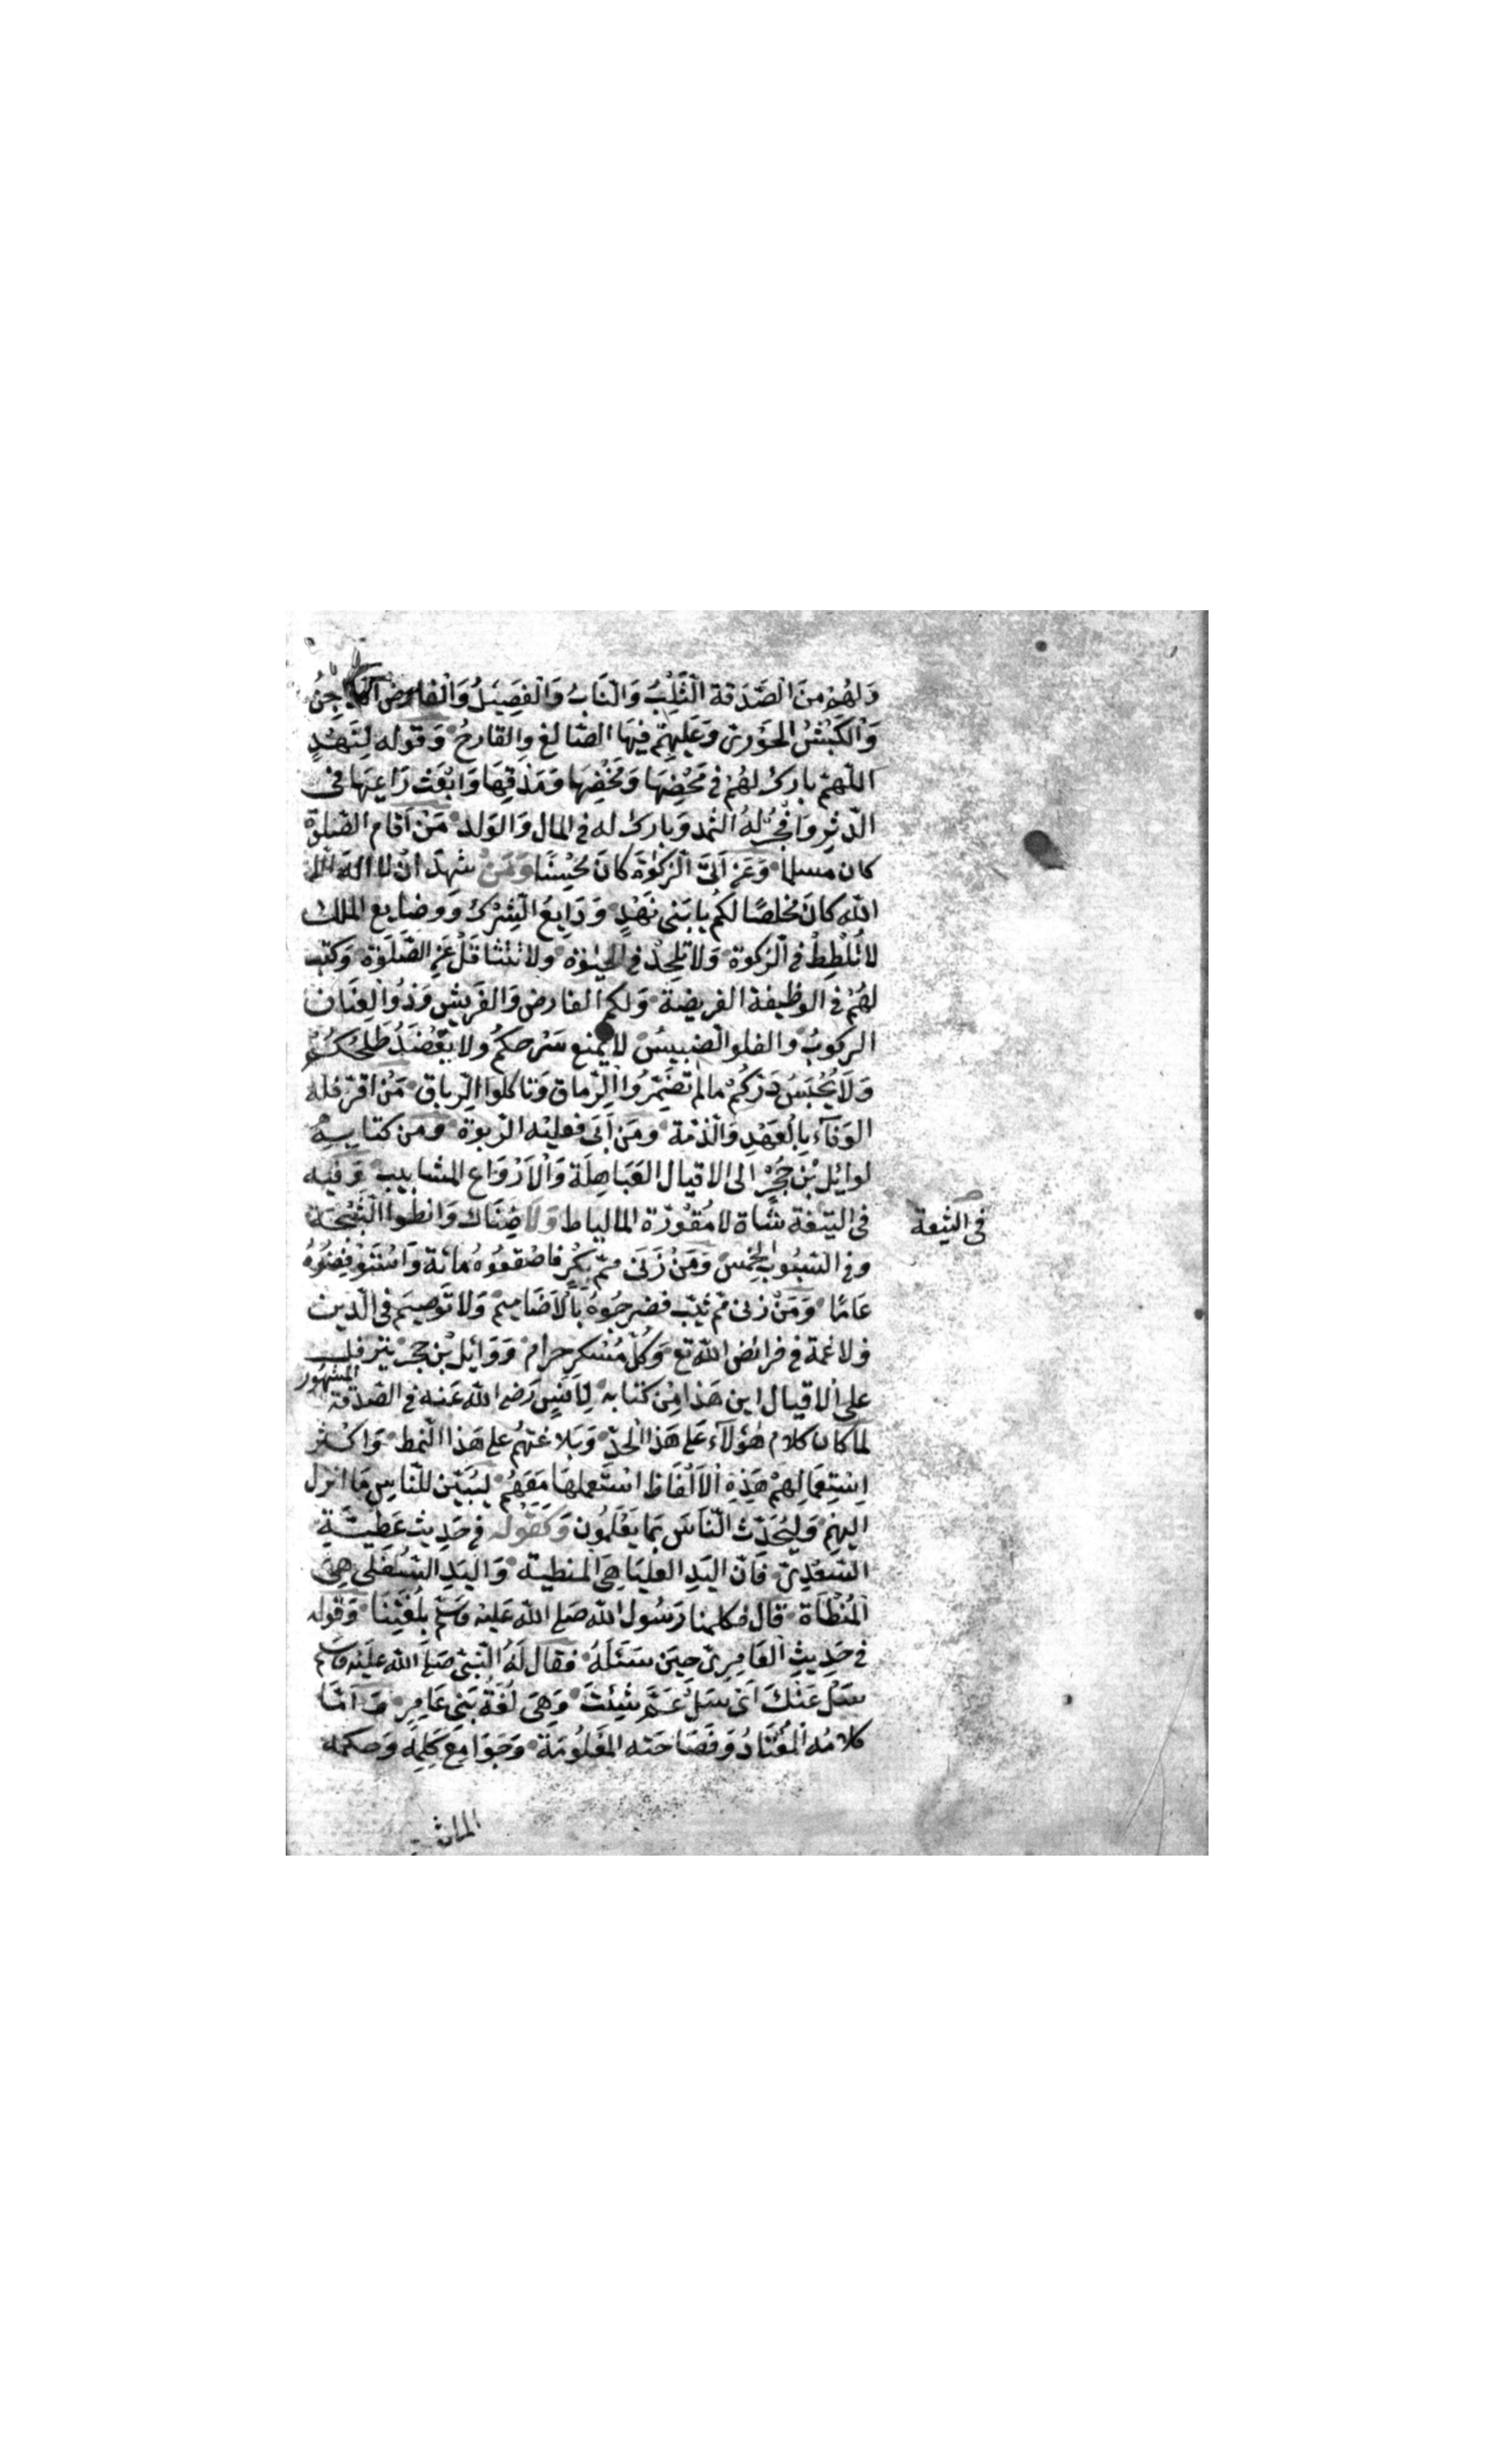 وَلهُمْ مِنَ الصَّدَقة الثِّلْبُ وَالنَّابُ وَالفَصِيلُ وَالفارِضُ الدَّاجِنُ
وَالكَبْشُ الحَوَرىّ وَعَلَيهِمْ فيهَا الصَّالغ والقارحُ وَقوله لِنَهْدٍ
اللّهمّ بارك لهُمْ فى مَحْضِهَا وَمَخْضِهَا وَمَذْقِهَا وَابْعَث رَاعِيَهَا فى
الدّثرِ وَافْجُرْ لهُ الثمد وَبارك له فى المال وَالوَلد مَنْ اَقام الصّلوة
كان مسلما وَمَن اَتىَ الزكوةَ كانَ مُحْسِنًا وَمَنْ شهدَ انْ لا اله الّا
اللّٰه كانَ مُخلصًا لكُم يا بَنى نَهْدٍ وَدَايعُ الشِرْك وَوضايع الملك
لا تُلْطِطْ فى الزكوة وَلا تُلحِدْ فى الحيٰوة ولا تتثاقَلْ عَنِ الصَّلَوٰة وَكتب
لهُمْ فى الوظيفة الفريضة وَلكم الفارض وَالفَريش وَذُو العِنَان
الركوبُ والفلو الضبيسُ لا يُمنع سَرْحكُم ولا يُعْضَدُ طَلحكُمْ
وَلَا يُحْبَسُ دَرّكُمْ ما لم تضْمِرُوا الرِّماق وَتاكلوا الرِّباق مَنْ اقرّ فله
الوَفآء بِالْعَهْدِ وَالذّمّة ومَن اَبىَ فعليْه الرّبوة وَمن كتابه
لوائِل بْن حُجْرٍ الى الاقيال العَبَاهِلَة وَالاَرْوَاع المشابيب وَفيه
فى التيعَة شَاة لا مُقْوَرّة الالياط وَلَا ضِنَاك وَانطوا الثَّبَجَة
فى التيعة
وفى السّيُوب الخمس وَمَنْ زَنىَ ممّ بِكْرٍ فاصْقعُوهُ مائة وَاسْتَوْفِضُوهُ
عَامًا وَمَنْ زنى مّم ثيّب فضرّجُوهُ بِالاَضَاميم وَلا تَوصِيمَ فى الدّين
ولا غمّة فى فرائض اللّٰه تع وَكُلّ مُسْكرٍ حرام وَوَائِل بْن حجر يترفل
على الاقيال اين هَذا مِنْ كتابه لِاَنسٍ رَضى اللّٰه عَنه فى الصّدقة المشهور
لما كان كلام هٰؤلآء عَلى هَذا الحدّ وَبَلاغتهُم على هَذا النّمط وَاكثر
اسْتِعَمالِهمْ هَذِهِ الاَلْفَاظ استَعملهَا مَعَهُم ليُبَيّن للنّاسِ مَا انزل
اليهِم وَليُحَدّث النّاسَ بِمَا يَعْلَمُون وَكقَوْله فى حَديث عَطيّة
السَّعْدِىّ فَانّ اليَدِ العليَا هِىَ المنطية وَاليَدِ السُّفْلى هِىَ
المُنْطَاة قال فكلمنا رَسُول اللّٰه صَلى اللّٰه عَليْه وَسَلّم بلُغَتِنَا وَقوله
فى حَدِيثِ العَامِرىّ حين سَئَلَهُ فقال لَهُ النّبىّ صَلى اللّٰه عَليْه وَسَلم
سَلْ عَنْكَ اَىْ سَلْ عَمَّ شِئتَ وَهِىَ لُغَةُ بَنى عَامِرٍ وَاَمّا
كلامُه المُعْتَادُ وَفصَاحَته المَعْلُومَة وَجَوَامِعَ كَلِمِه وَحِكَمه
الماثـ